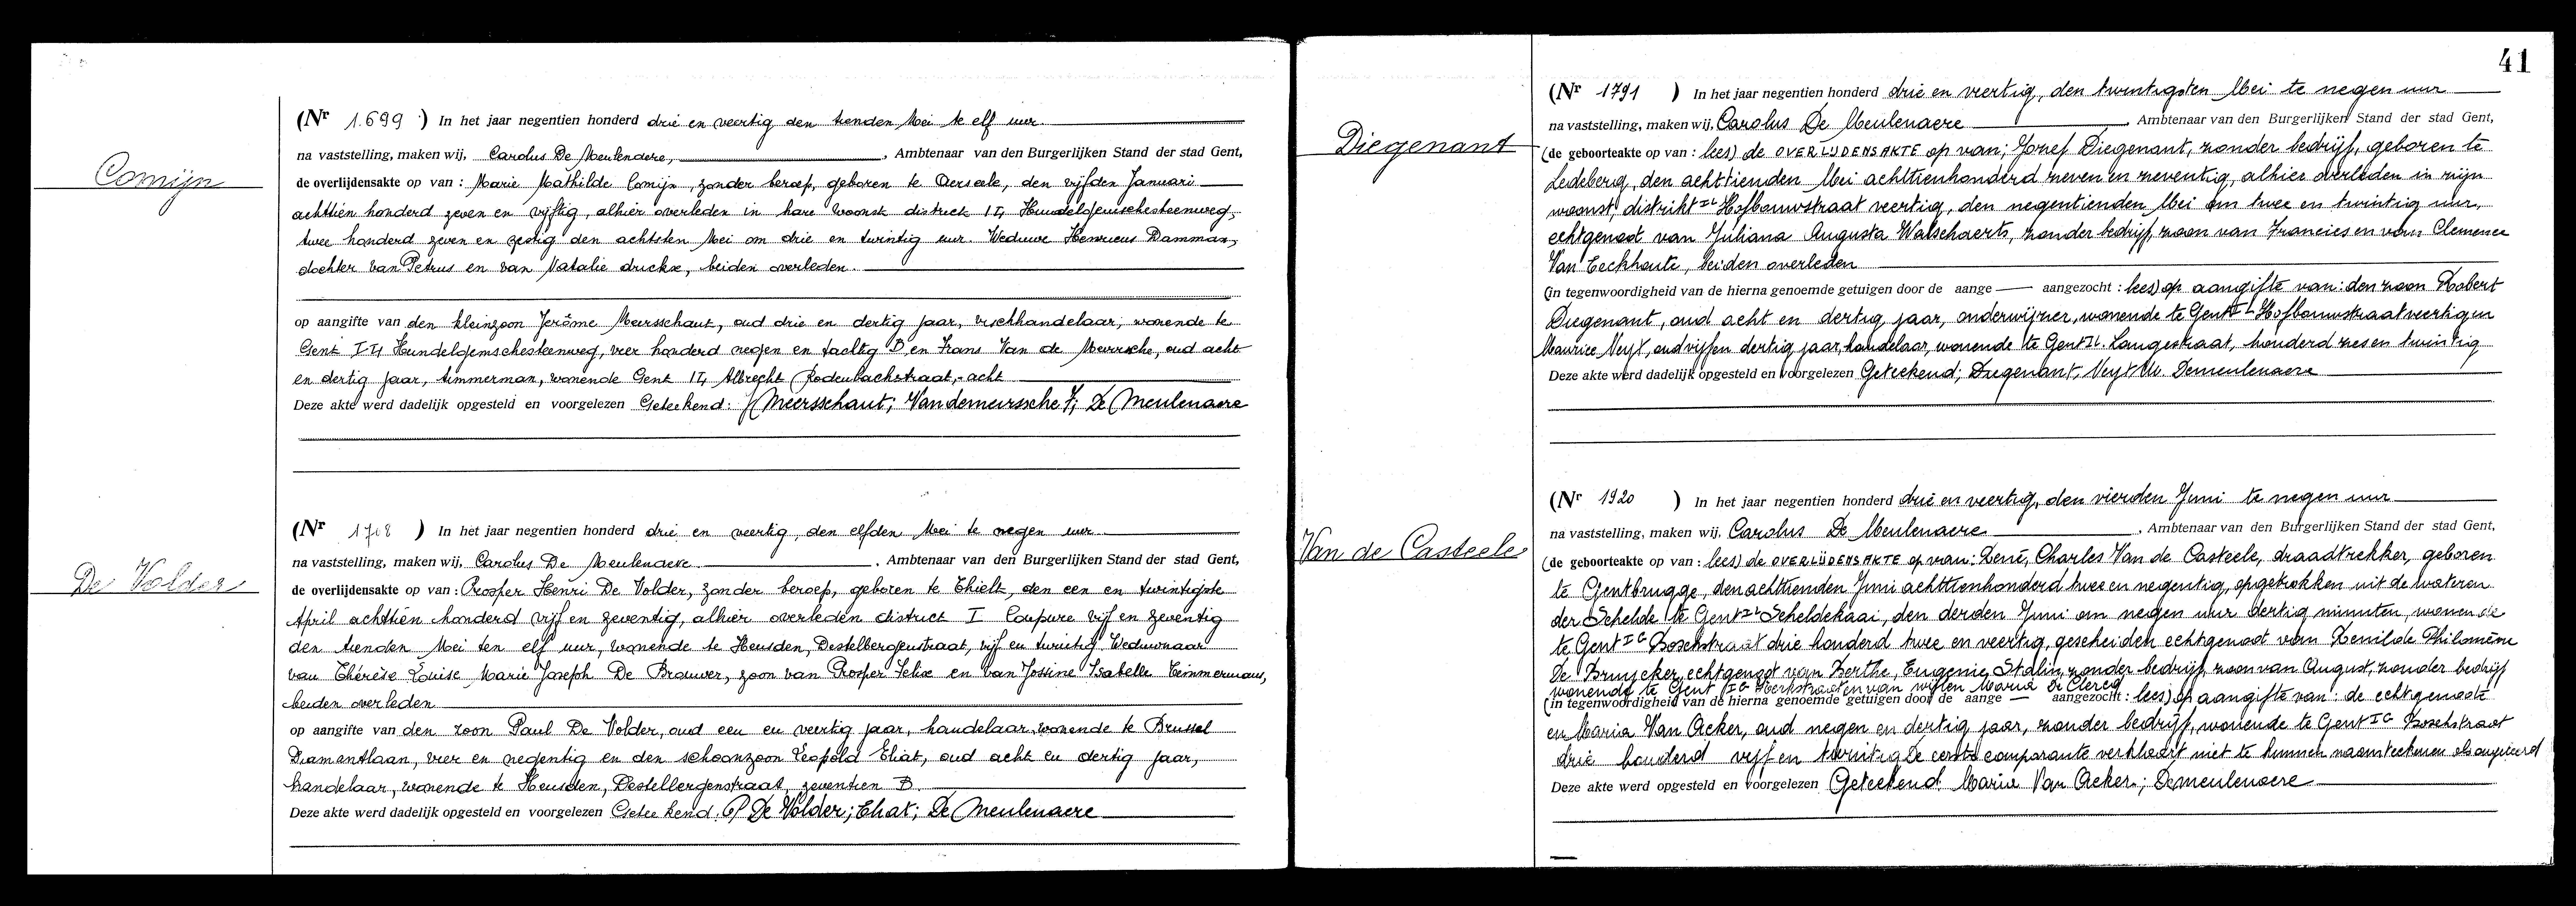 Comijn
(Nr 1.699 ) In het jaar negentien honderd drie en veertig den tienden Mei te elf uur.
na vaststelling, maken wij, Carolus De Meulenaere, , Ambtenaar van den Burgerlijken Stand der stad Gent,
de overlijdensakte op van : Marie Mathilde Comijn, zonder beroep, geboren te Aerseele, den vijfden Januari
achttien honderd zeven en vijftig, alhier overleden in hare woonst district II, Hundelgemschesteenweg,
twee honderd zeven en zestig den achtsten Mei om drie en twintig uur. Weduwe Henricus Damman,
dochter van Petrus en van Natalie druckx, beiden overleden.
op aangifte van den kleinzoon Jerôme Meersschaut, oud drie en dertig jaar, vischhandelaar, wonende te
Gent II, Hundelgemschesteenweg, vier honderd negen en tachtig B en Frans Van de Meirssche, oud acht
en dertig jaar, timmerman, wonende Gent II, Albrecht Rodenbachstraat, acht
Deze akte werd dadelijk opgesteld en voorgelezen Geteekend: J Meersschaut; Vandemeirssche F; De Meulenaere
De Volder
(Nr 1718 ) In het jaar negentien honderd drie en veertig, den elfden Mei te negen uur
na vaststelling, maken wij, Carolus De Meulenaere , Ambtenaar van den Burgerlijken Stand der stad Gent,
de overlijdensakte op van : Prosper Henri De Volder, zonder beroep, geboren te Thielt, den een en twintigste
April achttien honderd vijf en zeventig, alhier overleden district I Coupure vijf en zeventig
den tienden Mei ten elf uur, wonende te Heusden, Destelbergenstraat, vijf en twintig Weduwnaar
van Thérèse Louise Marie Joseph De Brouwer, zoon van Prosper Felix en van Jossine Isabelle Timmermans,
beiden overleden
op aangifte van den zoon Paul De Volder, oud een en veertig jaar, handelaar, wonende te Brussel
Diamantlaan, vier en negentig en den schoonzoon Leopold Ehat, oud acht en dertig jaar,
handelaar, wonende te Heusden, Destellergenstraat, zeventien B.
Deze akte werd dadelijk opgesteld en voorgelezen Geteekend. P De Volder; Ehat; De Meulenaere
41
Diegenant
(Nr 1791 ) In het jaar negentien honderd drie en veertig, den twintigsten Mei te negen uur
na vaststelling, maken wij, Carolus De Meulenaere , Ambtenaar van den Burgerlijken Stand der stad Gent,
(de geboorteakte op van : lees) de OVERLIJDENSAKTE op van; Jozef Diegenant, zonder bedrijf, geboren te
Ledeberg, den achttienden Mei achttienhonderd zeven en zeventig, alhier overleden in zijn
woonst, distrikt IL Hofbouwstraat veertig, den negentienden Mei om twee en twintig uur,
echtgenoot van Juliana Augusta Walschaerts, zonder bedrijf, zoon van Francies en van Clemence
Van Eeckhoute, beiden overleden
(in tegenwoordigheid van de hierna genoemde getuigen door de aange — aangezocht : lees) op aangifte van: den zoon Robert
Diegenant, oud acht en dertig jaar, onderwijzer, wonende te Gent IL Hofbouwstraat veertig en
Maurice Neyt, oud vijf en dertig jaar, handelaar, wonende te Gent IL. Langestraat, honderd zes en twintig
Deze akte werd dadelijk opgesteld en voorgelezen Geteekend; Diegenant, Neyt M. Demeulenaere
Van de Casteele
(Nr 1920 ) In het jaar negentien honderd drie en veertig, den vierden Juni te negen uur
na vaststelling, maken wij, Carolus De Meulenaere , Ambtenaar van den Burgerlijken Stand der stad Gent,
(de geboorteakte op van : lees) de OVERLIJDENSAKTE op van: René, Charles Van de Casteele, draadtrekker, geboren
te Gentbrugge, den achttienden Juni achttienhonderd twee en negentig, opgetrokken uit de wateren
der Schelde te Gent IL Scheldekaai, den derden Juni om negen uur dertig minuten, wonende
te Gent IG Boschstraat drie honderd twee en veertig, gescheiden echtgenoot van Renilde Philomène
De Bruycker, echtgenoot van Berthe, Eugenie Stalin, zonder bedrijf, zoon van August, zonder bedrijf
wonende te Gent IG en van wijlen Maria De Clercq
(in tegenwoordigheid van de hierna genoemde getuigen door de aange — aangezocht : lees) op aangifte van: de echtgenoote
en Maria Van Acker, oud negen en dertig jaar, zonder bedrijf, wonende te Gent IG Boschstraat
drie honderd vijf en twintig De eerste comparante verklaart niet te kunnen naamteekenen
Deze akte werd dadelijk opgesteld en voorgelezen Geteekend Maria Van Acker; Demeulenaere